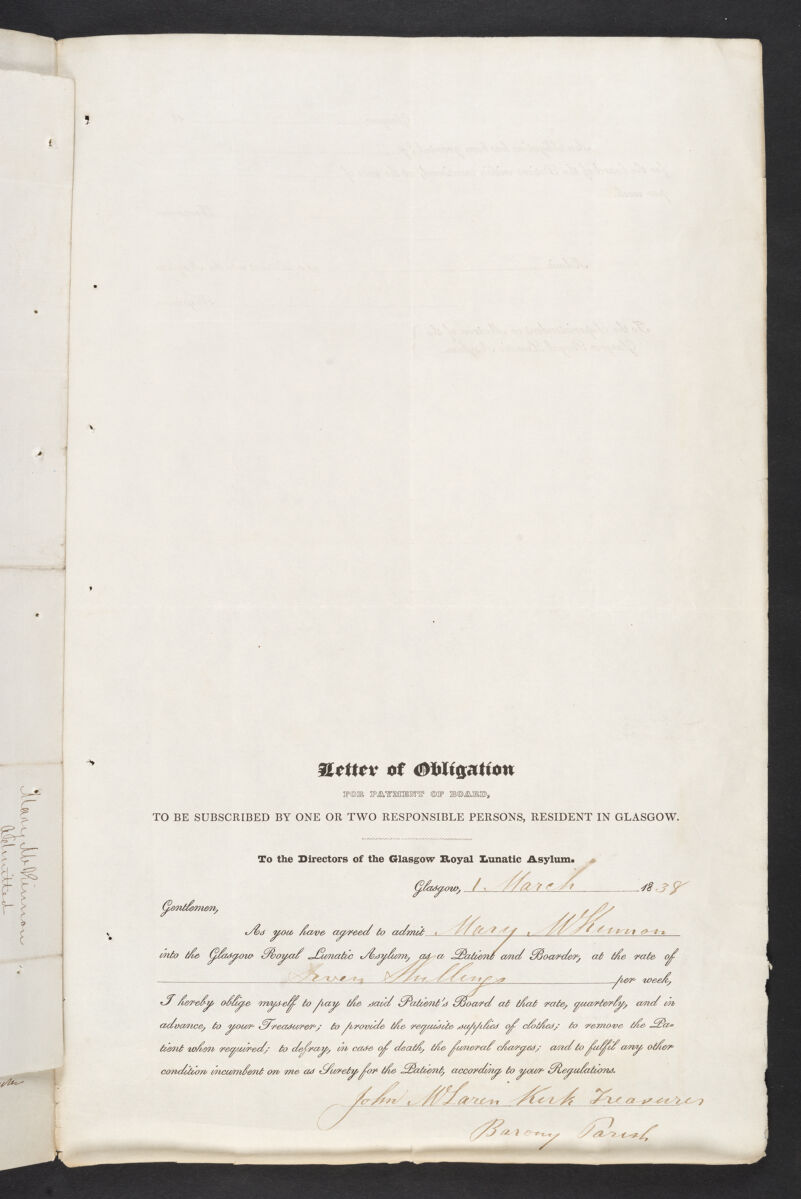 Letter of Obligation
FOR PAYMENT OF BOARD,
TO BE SUBSCRIBED BY ONE OR TWO RESPONSIBLE PERSONS, RESIDENT IN GLASGOW.
To the Directors of the Glasgow Royal Lunatic Asylum.
Glasgow, 1 March 1838
Gentlemen,
As you have agreed to admit Mary McKinnon
into the Glasgow Royal Lunatic Asylum, as a Patient and Boarder, at the rate of
Seven Shillings per week,
I hereby oblige myself to pay the said Patient's Board at that rate, quarterly, and in
advance, to your Treasurer; to provide the requisite supplies of clothes; to remove the Pa-
tient when required; to defray, in case of death, the funeral charges; and to fulfil any other
condition incumbent on me as Surety for the Patient, according to your Regulations.
John McLaren Kirk Treasurer
Barony Parish
Mary McKinnon
Admitted